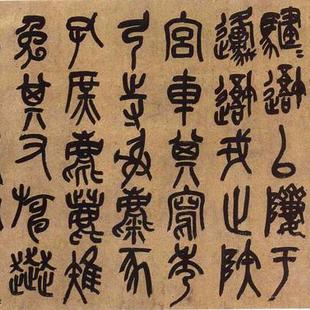 騝＝吾以隮于
邍吾戎止陸
宮車其寫秀
弓寺射麋豕
孔庶麀鹿雉
兔其又